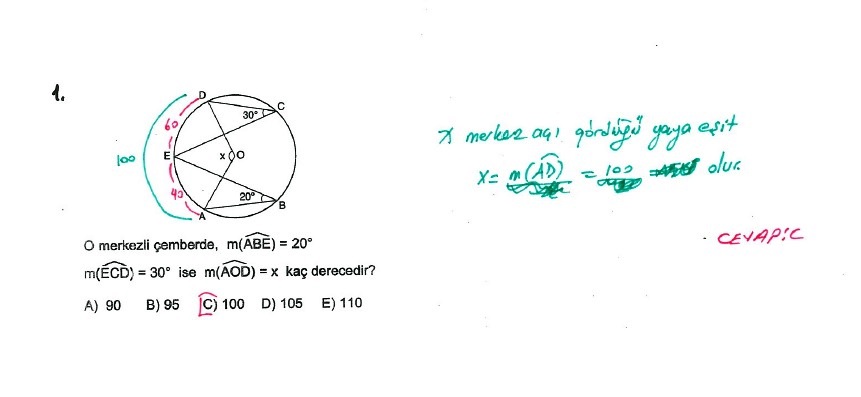 1.
D
C
30°
60
100
E
x
O
40
20°
B
A
x merkez açı gördüğü yaya eşit
x = m(AD) = 100 olur.
CEVAP: C
O merkezli çemberde, m(ABE) = 20°
m(ECD) = 30° ise m(AOD) = x kaç derecedir?
A) 90 B) 95 C) 100 D) 105 E) 110